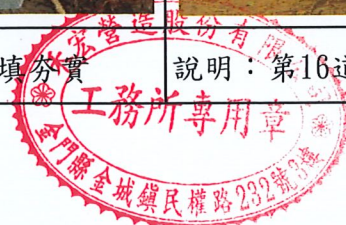 填夯實
說明：第16道
宏營造股份有限
工務所專用章
金門縣金城鎮民權路232號3樓